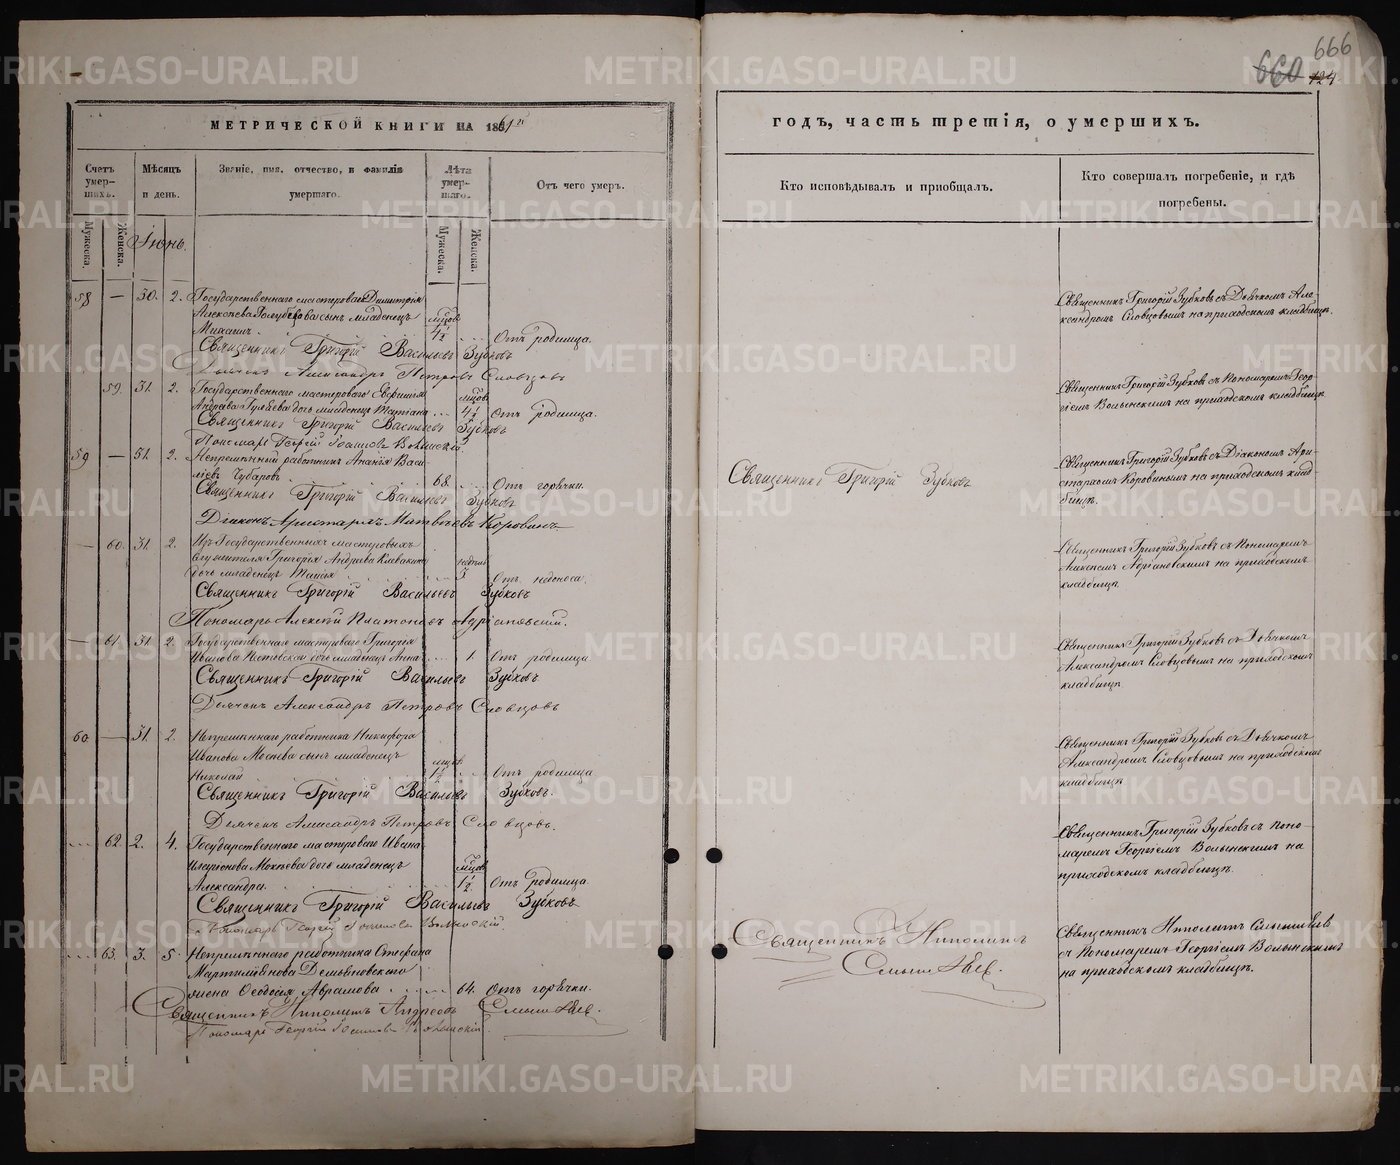 666
660 124.
МЕТРИЧЕСКОЙ КНИГИ НА 1861й
годъ, часть третія, о умершихъ.
Счетъ умер-шихъ.
Мѣсяцъ и день.
Званіе, имя, отчество, и фамилія умершаго.
Лѣта умер-шаго.
Отъ чего умеръ.
Кто исповѣдывалъ и пріобщалъ.
Кто совершалъ погребеніе, и гдѣ погребены.
Мужеска.
Женска.
Мужеска.
Женска.
Іюнь.
58 — 30. 2. Государственнаго мастероваго Димитрія
Алексѣева сынъ младенецъ мцовъ
Михаилъ. 4½ Отъ родимца.
Священникъ Григорій Васильевъ Зубковъ
Дьячекъ Александръ Петровъ Словцовъ
Священникъ Григорій Зубковъ съ Дьячкомъ Але-
ксандромъ Словцовымъ на приходскомъ кладбищѣ.
59. 31. 2. Государственнаго мастероваго
Андреева дочь младенецъ Татіана мцовъ 4½ Отъ родимца.
Священникъ Григорій Васильевъ Зубковъ
Пономарь Георгій Іоанновъ Волынскій.
Священникъ Григорій Зубковъ съ Пономаремъ Геор-
гіемъ Волынскимъ на приходскомъ кладбищѣ.
59 — 31. 2. Непремѣнный работникъ Ананія Васи-
льевъ Чубаровъ 68. Отъ горячки.
Священникъ Григорій Васильевъ Зубковъ
Діаконъ Аристархъ Матвѣевъ Коровинъ
Священникъ Григорій Зубковъ
Священникъ Григорій Зубковъ съ Діакономъ Ари-
стархомъ Коровинымъ на приходскомъ клад-
бищѣ.
— 60. 31. 2. Изъ Государственныхъ мастеровыхъ
служителя Григорія Андреева Клевакина
дочь младенецъ 3 Отъ недоноса.
Священникъ Григорій Васильевъ Зубковъ
Пономарь Алексій Платоновъ Адріановскій.
Священникъ Григорій Зубковъ съ Пономаремъ
Алексіемъ Адріановскимъ на приходскомъ
кладбищѣ.
— 61. 31. 2. Государственнаго мастероваго Григорія
Иванова дочь младенецъ Анна 1. Отъ родимца
Священникъ Григорій Васильевъ Зубковъ
Дьячекъ Александръ Петровъ Словцовъ
Священникъ Григорій Зубковъ съ Дьячкомъ
Александромъ Словцовымъ на приходскомъ
кладбищѣ
60. — 31. 2. Непремѣннаго работника Никифора
Иванова сынъ младенецъ
Николай мцовъ 1½ Отъ родимца
Священникъ Григорій Васильевъ Зубковъ.
Дьячекъ Александръ Петровъ Словцовъ.
Священникъ Григорій Зубковъ съ Дьячкомъ
Александромъ Словцовымъ на приходскомъ
кладбищѣ
62. 2. 4. Государственнаго мастероваго Ивана
Иларіонова дочь младенецъ мцовъ
Александра. 1½ Отъ родимца.
Священникъ Григорій Васильевъ Зубковъ
Пономарь Георгій Іоанновъ Волынскій.
Священникъ Григорій Зубковъ съ Поно-
маремъ Георгіемъ Волынскимъ на
приходскомъ кладбищѣ.
63. 3. 5. Непремѣннаго работника Стефана
Мартиміянова Демьяновскаго
жена Ѳеодосія Аврамова 64. Отъ горячки.
Священникъ Ипполитъ Андреевъ
Пономарь Георгій Іоанновъ Волынскій.
Священникъ Ипполитъ
Священникъ Ипполитъ
съ Пономаремъ Георгіемъ Волынскимъ
на приходскомъ кладбищѣ.
METRIKI.GASO-URAL.RU